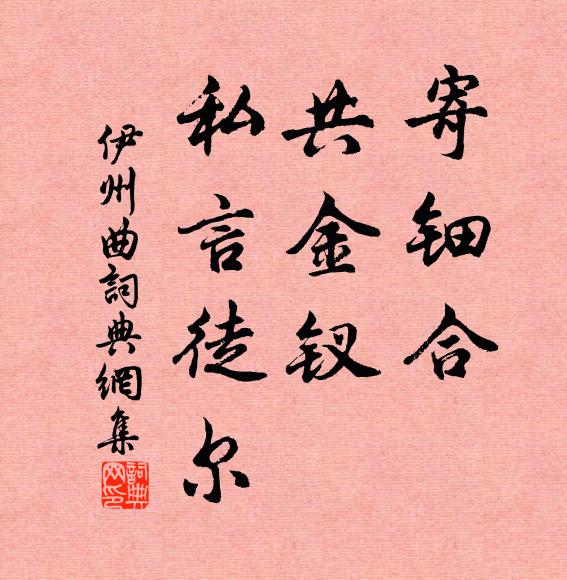 寄钿合
共金钗
私言徒尔
伊州曲詞典網集
詞典网印